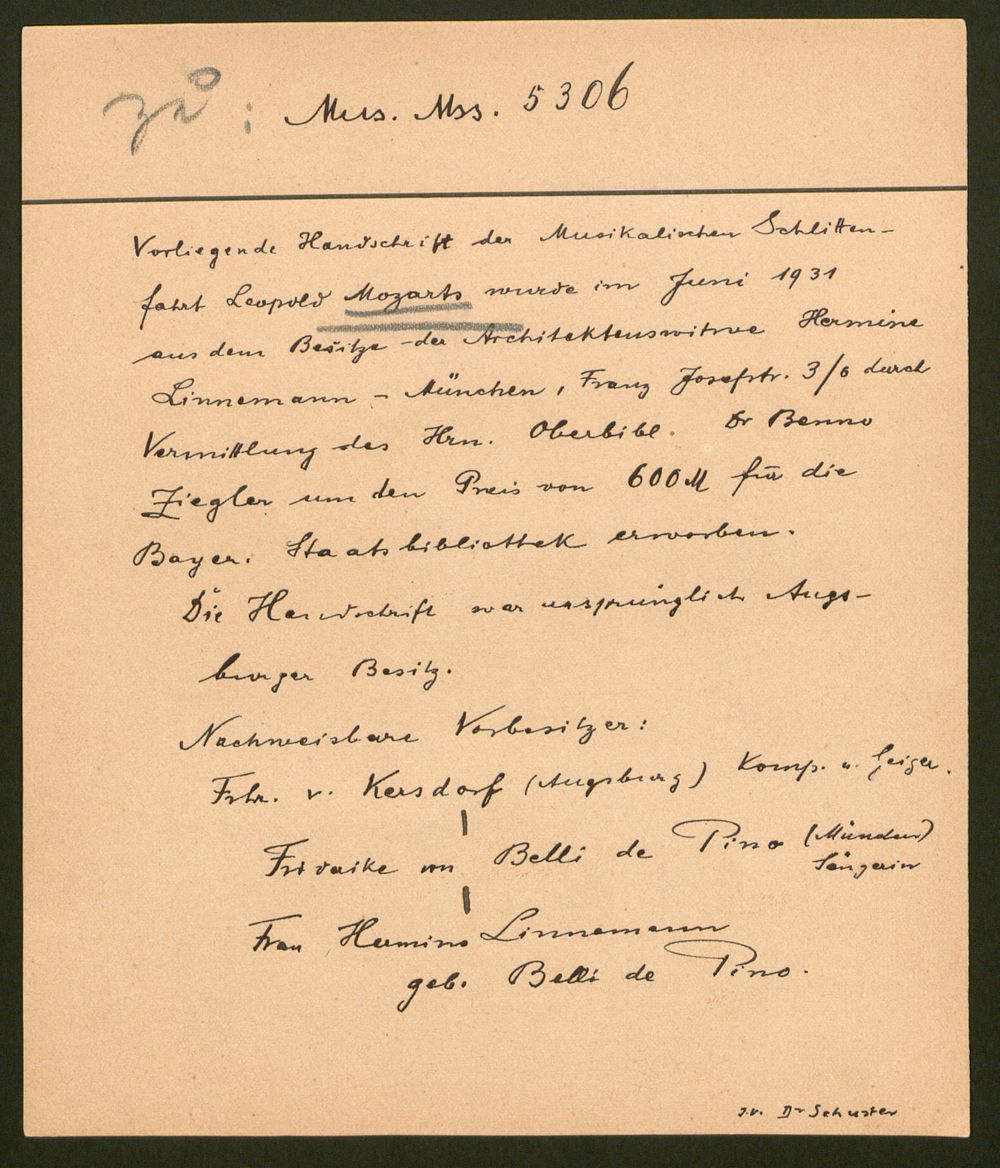 zu: Mus. Mss. 5306
Vorliegende Handschrift der Musikalischen Schlitten-
fahrt Leopold Mozarts wurde im Juni 1931
aus dem Besitze der Architektenswitwe Hermine
Linnemann - München, Franz Josefstr. 3/0 durch
Vermittlung des Hrn. Oberbibl. Dr Benno
Ziegler um den Preis von 600 M für die
Bayer. Staatsbibliothek erworben.
Die Handschrift war ursprünglich Augs-
burger Besitz.
Nachweisbare Vorbesitzer:
Frhr. v. Kersdorf (Augsburg) Komp. u. Geiger.
von Belli de Pino (München)
Sängerin
Frau Hermine Linnemann
geb. Belli de Pino.
Dr Schuster